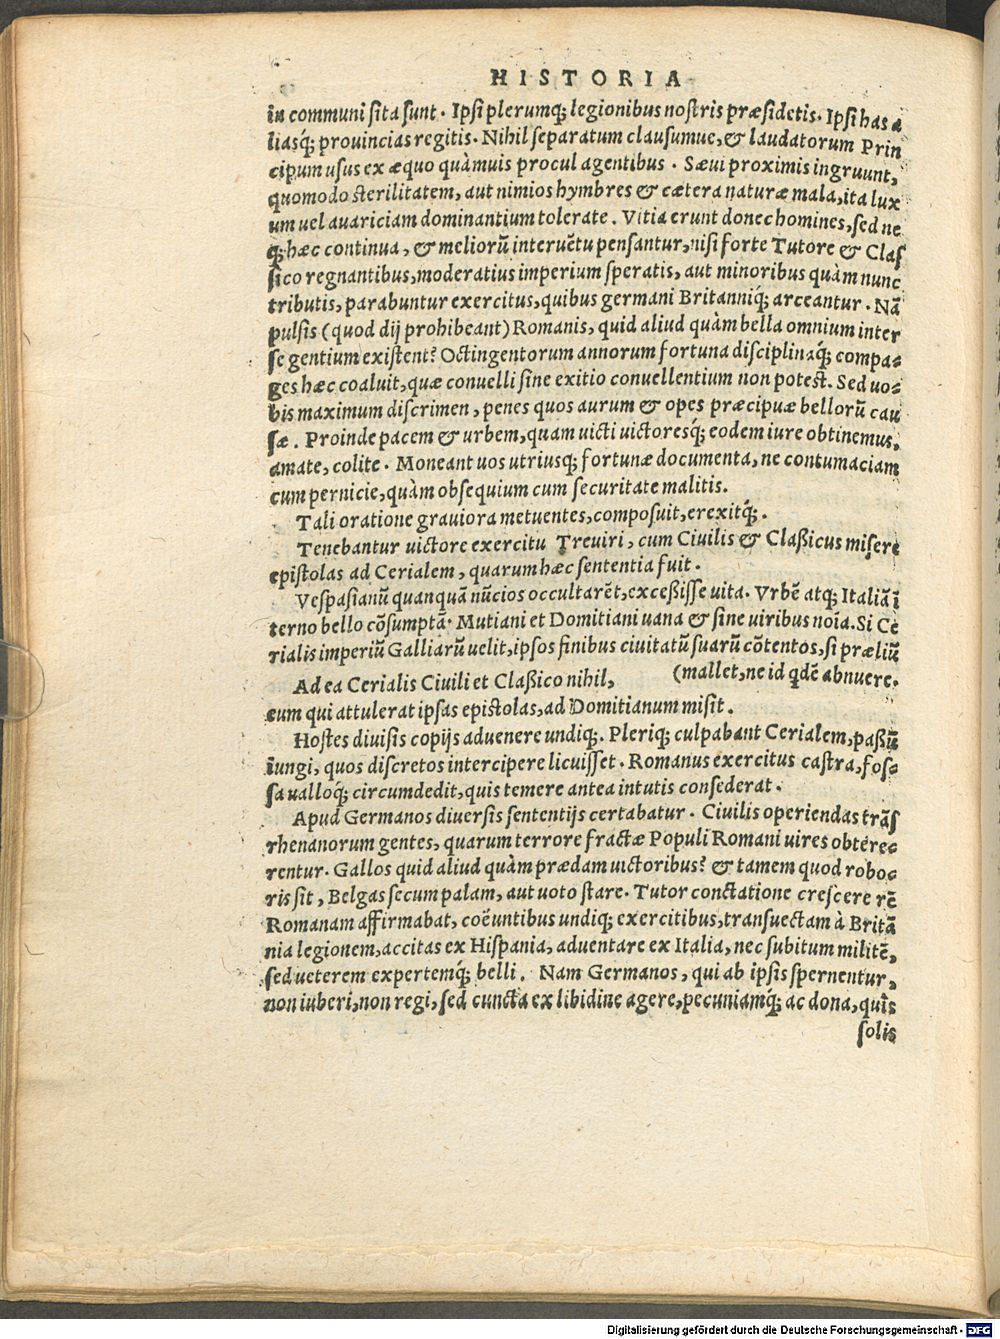 HISTORIA
in communi sita sunt. Ipsi plerumq; legionibus nostris præsidetis. Ipsi has a
liasq́; prouincias regitis. Nihil separatum clausumue, & laudatorum Prin
cipum usus ex æquo quàmuis procul agentibus. Sæui proximis ingruunt,
quomodo sterilitatem, aut nimios hymbres & cætera naturæ mala, ita lux
um uel auariciam dominantium tolerate. Vitia erunt donec homines, sed ne
q; hæc continua, & meliorũ interuẽtu pensantur, nisi forte Tutore & Clas
sico regnantibus, moderatius imperium speratis, aut minoribus quàm nunc
tributis, parabuntur exercitus, quibus germani Britanniq́; arceantur. Nã
pulsis (quod dij prohibeant) Romanis, quid aliud quàm bella omnium inter
se gentium existent? Octingentorum annorum fortuna disciplinaq́; compa-
ges hæc coaluit, quæ conuelli sine exitio conuellentium non potest. Sed uo-
bis maximum discrimen, penes quos aurum & opes præcipuæ bellorũ cau
sæ. Proinde pacem & urbem, quam uicti uictoresq́; eodem iure obtinemus,
amate, colite. Moneant uos utriusq; fortunæ documenta, ne contumaciam
cum pernicie, quàm obsequium cum securitate malitis.
Tali oratione grauiora metuentes, composuit, erexitq́;.
Tenebantur uictore exercitu Treuiri, cum Ciuilis & Claßicus misere
epistolas ad Cerialem, quarum hæc sententia fuit.
Vespasianũ quanquã nũcios occultarẽt, exceßisse uita. Vrbẽ atq; Italiã ĩ
terno bello cõsumptã. Mutiani et Domitiani uana & sine uiribus noĩa. Si Ce
rialis imperiũ Galliarũ uelit, ipsos finibus ciuitatũ suarũ cõtentos, si præliũ
(mallet, ne id qdẽ abnuere.
Ad ea Cerialis Ciuili et Claßico nihil,
eum qui attulerat ipsas epistolas, ad Domitianum misit.
Hostes diuisis copijs aduenere undiq;. Pleriq; culpabant Cerialem, paßũ
iungi, quos discretos intercipere licuisset. Romanus exercitus castra, fos-
sa ualloq́; circumdedit, quis temere antea intutis consederat.
Apud Germanos diuersis sententijs certabatur. Ciuilis operiendas trãs
rhenanorum gentes, quarum terrore fractæ Populi Romani uires obtere-
rentur. Gallos quid aliud quàm prædam uictoribus? & tamem quod robo-
ris sit, Belgas secum palam, aut uoto stare. Tutor conctatione crescere rẽ
Romanam affirmabat, coëuntibus undiq; exercitibus, transuectam à Britã
nia legionem, accitas ex Hispania, aduentare ex Italia, nec subitum militẽ,
sed ueterem expertemq́; belli. Nam Germanos, qui ab ipsis spernentur,
non iuberi, non regi, sed cuncta ex libidine agere, pecuniamq́; ac dona, quîs
solis
Digitalisierung gefördert durch die Deutsche Forschungsgemeinschaft - DFG